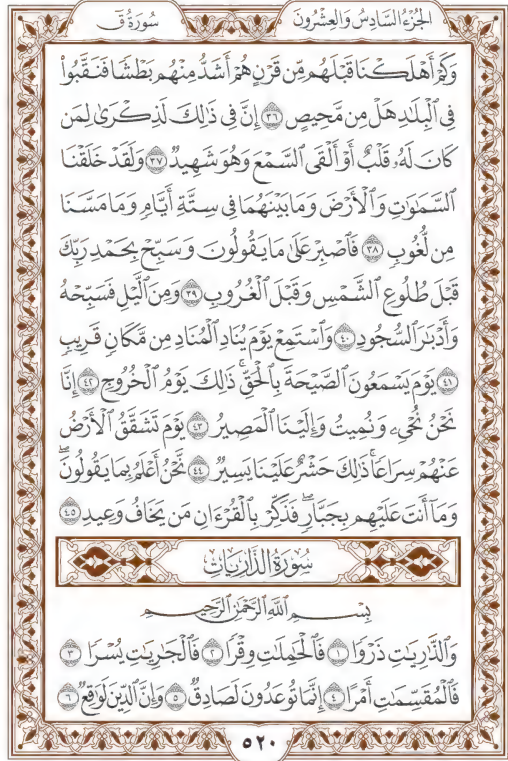 الجُزْءُ السَّادِسُ وَالعِشْرُونَ سُورَةُ قٓ
وَكَمْ أَهْلَكْنَا قَبْلَهُم مِّن قَرْنٍ هُمْ أَشَدُّ مِنْهُم بَطْشًا فَنَقَّبُوا۟
فِى ٱلْبِلَٰدِ هَلْ مِن مَّحِيصٍ ٣٦ إِنَّ فِى ذَٰلِكَ لَذِكْرَىٰ لِمَن
كَانَ لَهُۥ قَلْبٌ أَوْ أَلْقَى ٱلسَّمْعَ وَهُوَ شَهِيدٌ ٣٧ وَلَقَدْ خَلَقْنَا
ٱلسَّمَٰوَٰتِ وَٱلْأَرْضَ وَمَا بَيْنَهُمَا فِى سِتَّةِ أَيَّامٍ وَمَا مَسَّنَا
مِن لُّغُوبٍ ٣٨ فَٱصْبِرْ عَلَىٰ مَا يَقُولُونَ وَسَبِّحْ بِحَمْدِ رَبِّكَ
قَبْلَ طُلُوعِ ٱلشَّمْسِ وَقَبْلَ ٱلْغُرُوبِ ٣٩ وَمِنَ ٱلَّيْلِ فَسَبِّحْهُ
وَأَدْبَٰرَ ٱلسُّجُودِ ٤٠ وَٱسْتَمِعْ يَوْمَ يُنَادِ ٱلْمُنَادِ مِن مَّكَانٍ قَرِيبٍ
٤١ يَوْمَ يَسْمَعُونَ ٱلصَّيْحَةَ بِٱلْحَقِّ ۚ ذَٰلِكَ يَوْمُ ٱلْخُرُوجِ ٤٢ إِنَّا
نَحْنُ نُحْىِۦ وَنُمِيتُ وَإِلَيْنَا ٱلْمَصِيرُ ٤٣ يَوْمَ تَشَقَّقُ ٱلْأَرْضُ
عَنْهُمْ سِرَاعًا ۚ ذَٰلِكَ حَشْرٌ عَلَيْنَا يَسِيرٌ ٤٤ نَّحْنُ أَعْلَمُ بِمَا يَقُولُونَ ۖ
وَمَآ أَنتَ عَلَيْهِم بِجَبَّارٍ ۖ فَذَكِّرْ بِٱلْقُرْءَانِ مَن يَخَافُ وَعِيدِ ٤٥
سُورَةُ الذَّارِيَاتِ
بِسْمِ ٱللَّهِ ٱلرَّحْمَٰنِ ٱلرَّحِيمِ
وَٱلذَّٰرِيَٰتِ ذَرْوًا ١ فَٱلْحَٰمِلَٰتِ وِقْرًا ٢ فَٱلْجَٰرِيَٰتِ يُسْرًا ٣
فَٱلْمُقَسِّمَٰتِ أَمْرًا ٤ إِنَّمَا تُوعَدُونَ لَصَادِقٌ ٥ وَإِنَّ ٱلدِّينَ لَوَٰقِعٌ ٦
٥٢٠